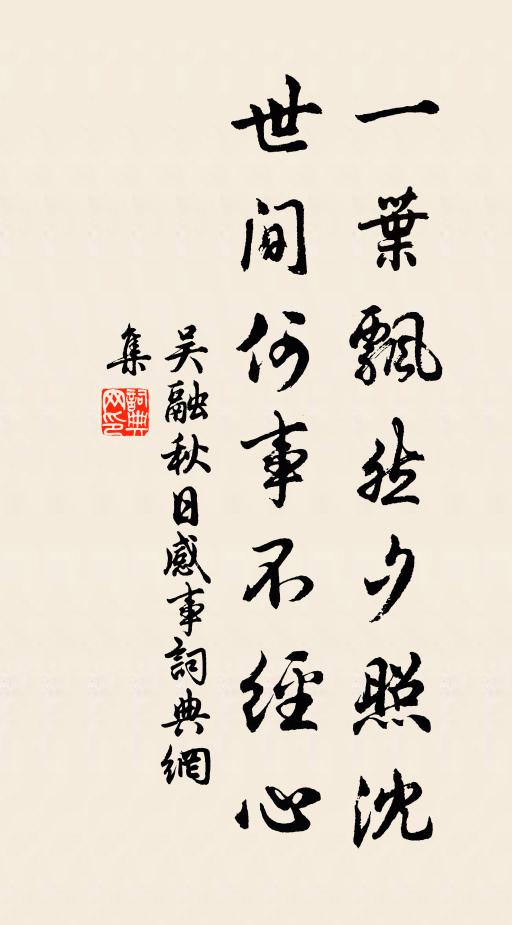 一葉飄然夕照沈
世间何事不經心
吴融秋日感事詞典網
集
詞典网印